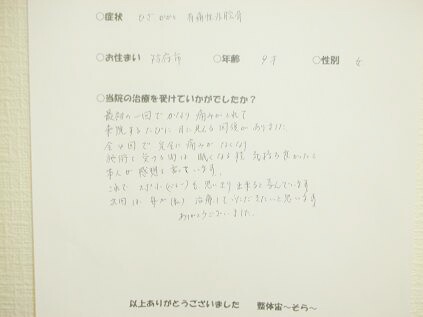 ○症状 ひざ かかと 有痛性外脛骨
○お住まい 防府市 ○年齢 9才 ○性別 女
○当院の治療を受けていかがでしたか？
最初の一回でかなり痛みがとれて
来院するたびに目に見える回復がありました
全4回で完全に痛みがなくなり
施術を受ける間は眠くなる程、気持ち良かったと
本人が感想を言っています。
これで を思いきり出来ると喜んでいます
次回は、母が 治療していただきたいと思います
ありがとうございました。
以上ありがとうございました 整体宙～そら～